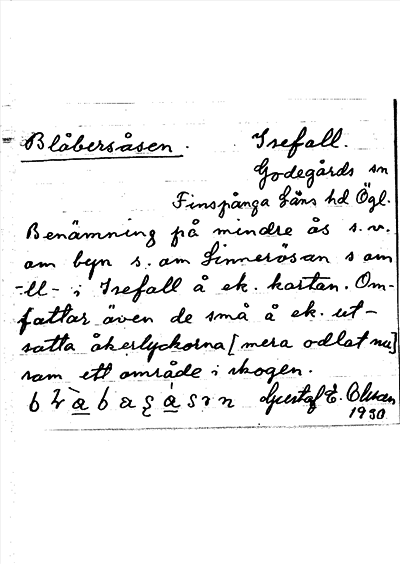 Blåbersåsen.
Isefall.
Godegårds sn
Finspånga Läns hd Ögl.
Benämning på mindre ås s.v.
om byn s. om Linnerösan s om
-ll- i Isefall å ek. kartan. Om-
fattar även de små å ek. ut-
satta åkerlyckorna [mera odlat nu]
som ett område i skogen.
Gustaf E. Olsson
1930